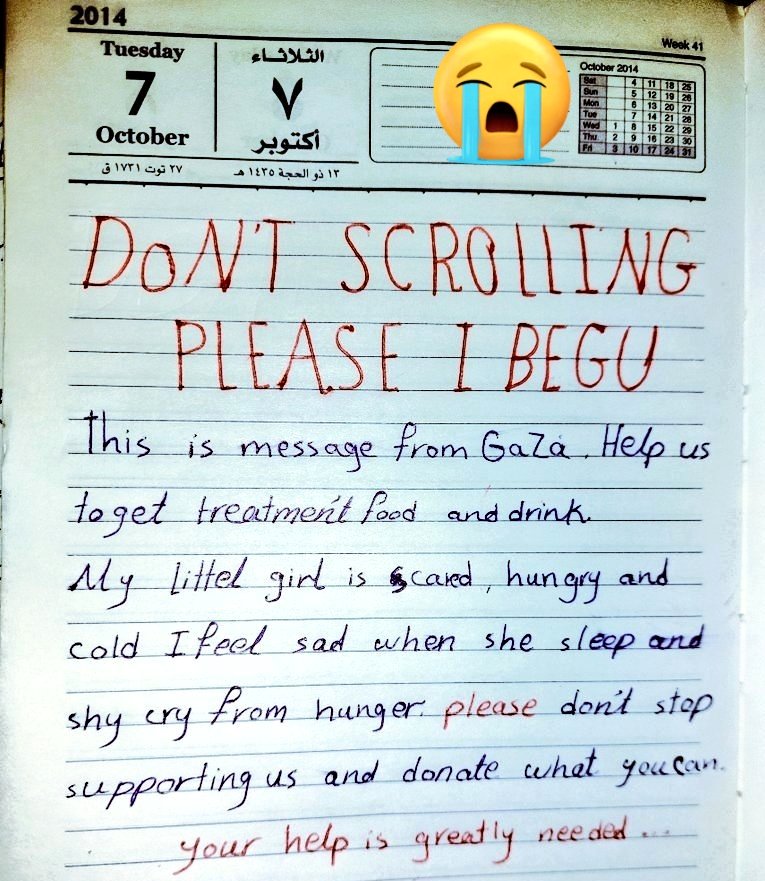 2014
Week 41
Tuesday
7
October
الثلاثاء
٧
أكتوبر
٢٧ توت ١٧٣١ ق
١٣ ذو الحجة ١٤٣٥ هـ
October 2014
Sat 4 11 18 25
Sun 5 12 19 26
Mon 6 13 20 27
Tue 7 14 21 28
Wed 1 8 15 22 29
Thu 2 9 16 23 30
Fri 3 10 17 24 31
DON'T SCROLLING
PLEASE I BEG U
This is message from Gaza. Help us
to get treatmen't food and drink.
My littel girl is scared, hungry and
cold I feel sad when she sleep and
shy cry from hunger. please don't stop
supporting us and donate what you can.
your help is greatly needed...